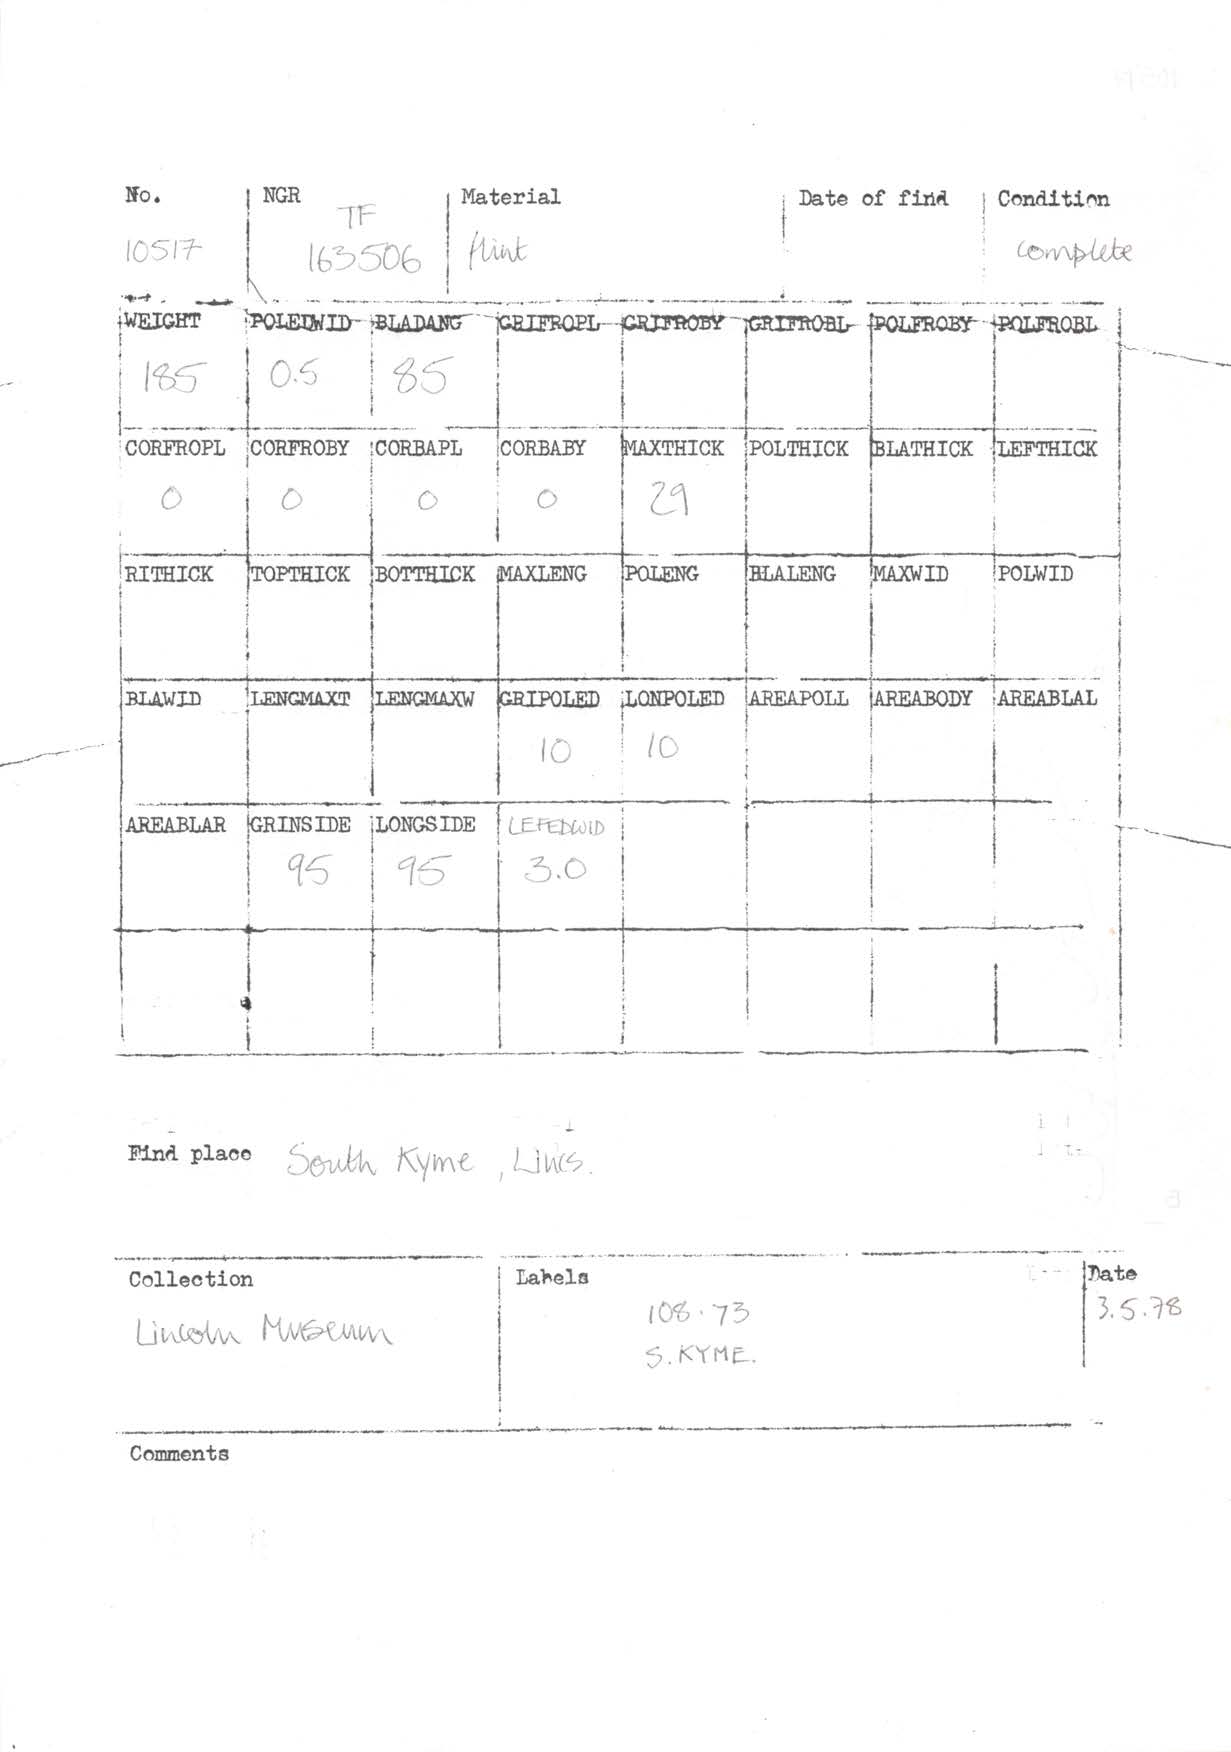 No. NGR Material Date of find Condition
TF
10517 163506 flint complete
WEIGHT POLEDWID BLADANG GRIFROPL GRIFROBY GRIFROBL POLFROBY POLFROBL
185 0.5 85
CORFROPL CORFROBY CORBAPL CORBABY MAXTHICK POLTHICK BLATHICK LEFTHICK
0 0 0 0 29
RITHICK TOPTHICK BOTTHICK MAXLENG POLENG BLALENG MAXWID POLWID
BLAWID LENGMAXT LENGMAXW GRIPOLED LONPOLED AREAPOLL AREABODY AREABLAL
10 10
AREABLAR GRINSIDE LONGSIDE LEFEDWID
95 95 3.0
Find place South Kyme, Lincs.
Collection Labels Date
Lincoln Museum 108.73 3.5.78
S. KYME.
Comments